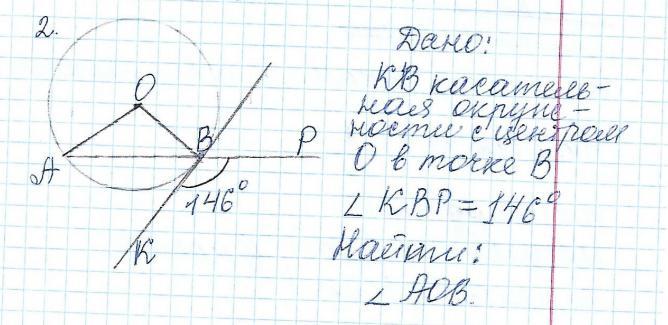 2.
O
B
P
A
146°
K
Дано:
KB касатель-
ная окруж-
ности с центром
O в точке B
∠KBP = 146°
Найти:
∠AOB.